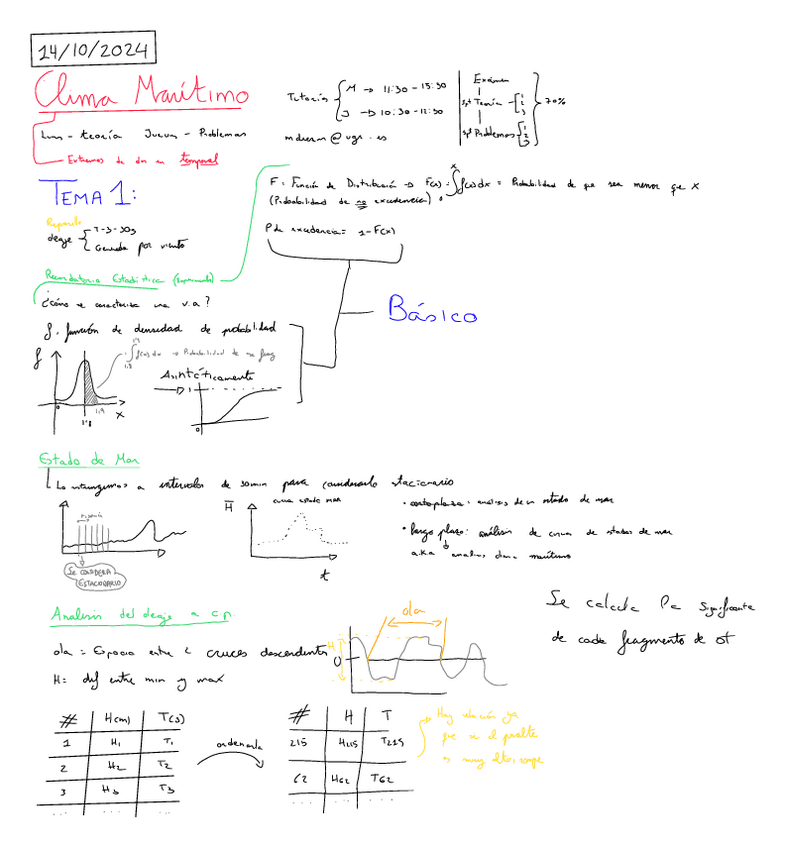 14/10/2024
Clima Marítimo
Lunes - teoría Jueves - Problemas
Extremos de dm en temporal
Tutoría
M → 11:30 - 15:30
J → 10:30 - 12:30
@ugr.es
Examen
Teoría 1 2 3
Problemas 1 2 3
70%
TEMA 1:
Repaso
oleaje
T - 3 - 30s
Generado por viento
F: Función de Distribución → F(x) = ∫ f(x)dx = Probabilidad de que sea menor que X
(Probabilidad de no excedencia)
P de excedencia = 1 - F(x)
Recordatorio Estadística
¿Cómo se caracteriza una v.a?
f. función de densidad de probabilidad
f
∫ f(x)dx → Probabilidad de
1'8
1'9
x
Asintóticamente
1
0
Básico
Estado de Mar
Lo restringimos a intervalos de 30min para considerarlo estacionario
SE CONSIDERA
ESTACIONARIO
H
curva estado mar
t
• corto plazo: análisis de un estado de mar
• largo plazo: análisis de curva de estados de mar
a.k.a analisis clima marítimo
Se calcula la significante
de cada fragmento de
Analisis del oleaje a c.p.
ola = Espacio entre 2 cruces descendentes
H = dif entre min y max
ola
H
0
# H(m) T(s)
1 H1 T1
2 H2 T2
3 H3 T3
... ... ...
ordenarla
# H T
215 H215 T215
62 H62 T62
... ... ...
Hay relación ya
que si el peralte
es muy alto, rompe